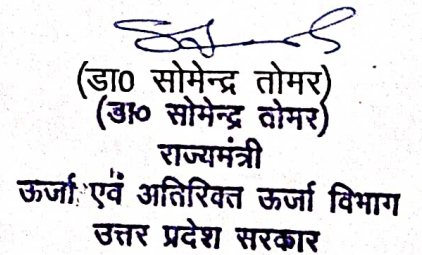 (डा० सोमेन्द्र तोमर)
(डा० सोमेन्द्र तोमर)
राज्यमंत्री
ऊर्जा एवं अतिरिक्त ऊर्जा विभाग
उत्तर प्रदेश सरकार